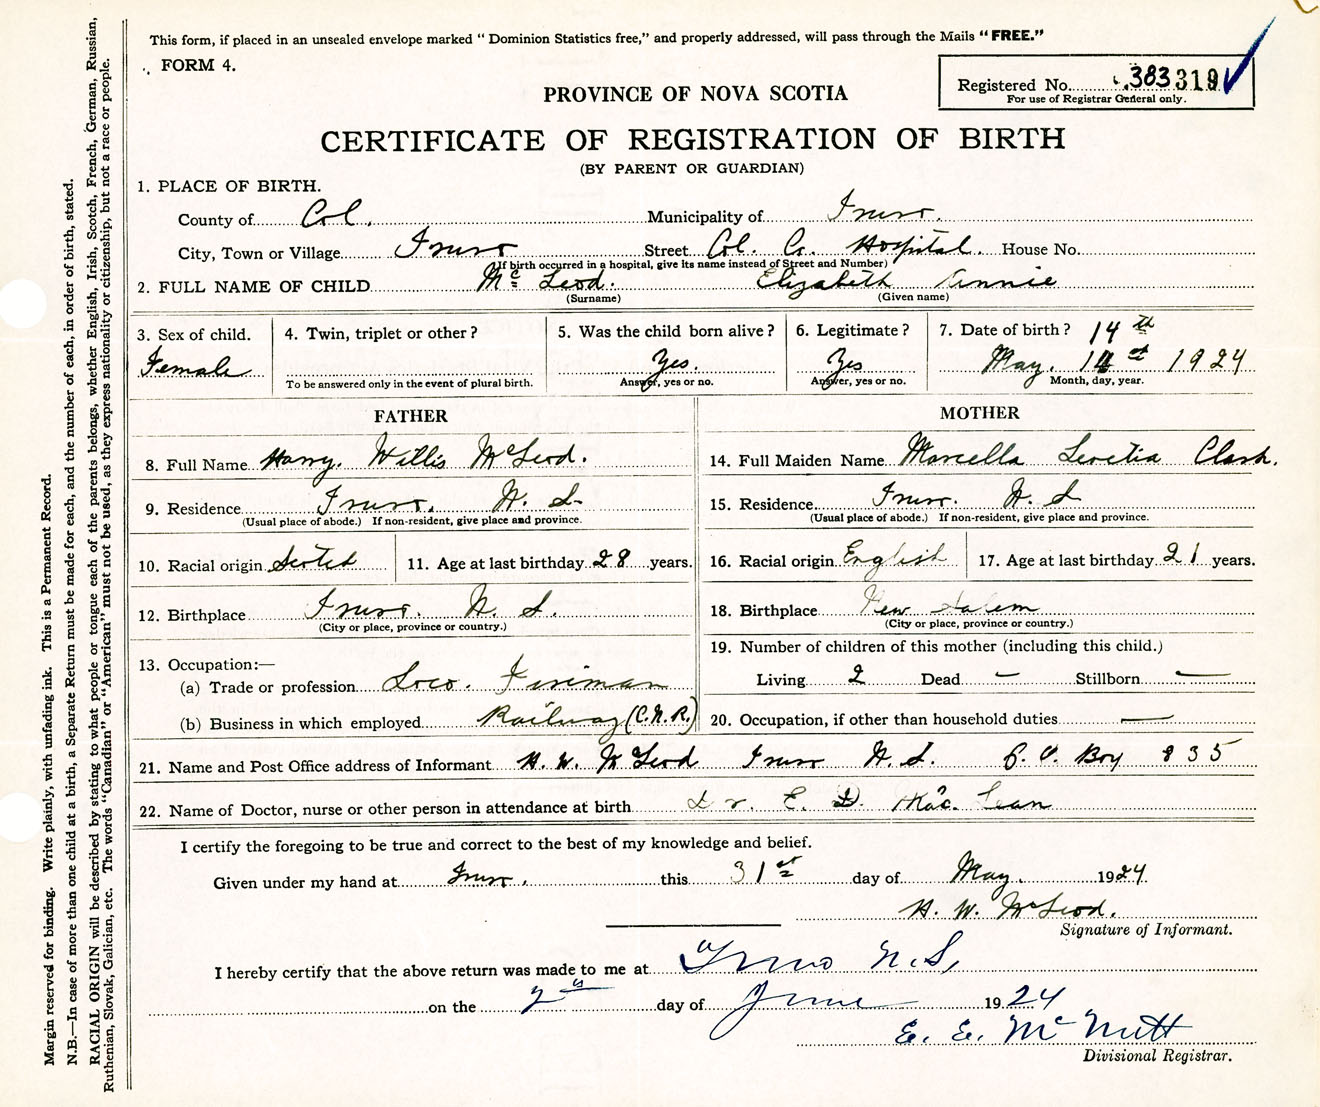 This form, if placed in an unsealed envelope marked "Dominion Statistics free," and properly addressed, will pass through the Mails "FREE."
FORM 4.
Registered No. 383319
For use of Registrar General only.
PROVINCE OF NOVA SCOTIA
CERTIFICATE OF REGISTRATION OF BIRTH
(BY PARENT OR GUARDIAN)
1. PLACE OF BIRTH.
County of Col. Municipality of Truro.
City, Town or Village Truro Street Col. Co. Hospital. House No.
(If birth occurred in a hospital, give its name instead of Street and Number)
2. FULL NAME OF CHILD McLeod. Elizabeth Annie
(Surname) (Given name)
3. Sex of child. Female
4. Twin, triplet or other?
To be answered only in the event of plural birth.
5. Was the child born alive? Yes.
Answer, yes or no.
6. Legitimate? Yes
Answer, yes or no.
7. Date of birth? 14th
May. 14st 1924
Month, day, year.
FATHER
8. Full Name Harry. Willis McLeod.
9. Residence Truro. N. S.
(Usual place of abode.) If non-resident, give place and province.
10. Racial origin Scotch 11. Age at last birthday 28 years.
12. Birthplace Truro. N. S.
(City or place, province or country.)
13. Occupation:—
(a) Trade or profession Loco. Fireman
(b) Business in which employed Railway (C.N.R.)
MOTHER
14. Full Maiden Name Marcella Clark.
15. Residence Truro. N. S
(Usual place of abode.) If non-resident, give place and province.
16. Racial origin English 17. Age at last birthday 21 years.
18. Birthplace New Salem
(City or place, province or country.)
19. Number of children of this mother (including this child.)
Living 2 Dead — Stillborn —
20. Occupation, if other than household duties —
21. Name and Post Office address of Informant H. W. McLeod Truro N. S. P. O. Box 835
22. Name of Doctor, nurse or other person in attendance at birth Dr. E. D. MacLean
I certify the foregoing to be true and correct to the best of my knowledge and belief.
Given under my hand at Truro. this 31st day of May. 1924
H. W. McLeod.
Signature of Informant.
I hereby certify that the above return was made to me at Truro N.S,
on the day of June 1924
E. E. McNutt
Divisional Registrar.
Margin reserved for binding. Write plainly, with unfading ink. This is a Permanent Record.
N.B.—In case of more than one child at a birth, a Separate Return must be made for each, and the number of each, in order of birth, stated.
RACIAL ORIGIN will be described by stating to what people or tongue each of the parents belongs, whether English, Irish, Scotch, French, German, Russian,
Ruthenian, Slovak, Galician, etc. The words "Canadian" or "American" must not be used, as they express nationality or citizenship, but not a race or people.